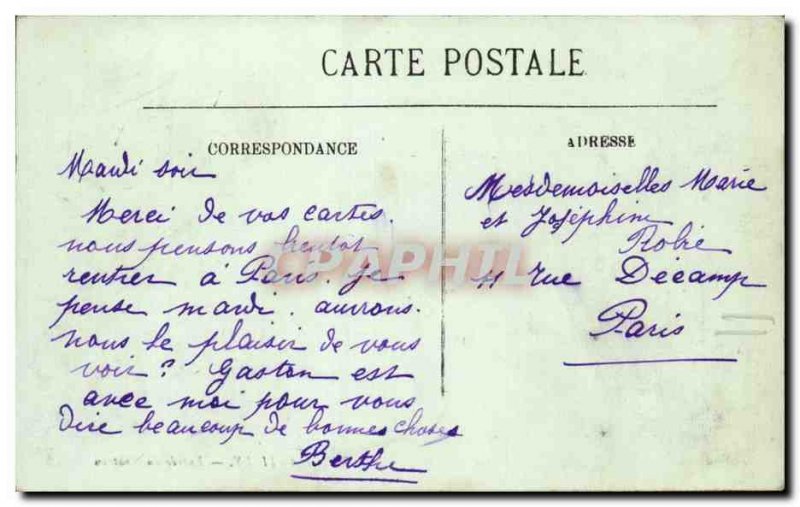 CARTE POSTALE
CORRESPONDANCE
Mardi soir
Merci de vos cartes.
nous pensons bientot
rentrer à Paris. Je
pense mardi. aurons.
nous le plaisir de vous
voir ? Gaston est
avec moi pour vous
dire beaucoup de bonnes choses
Berthe
ADRESSE
Mesdemoiselles Marie
et Joséphine
11 rue Decamp
Paris